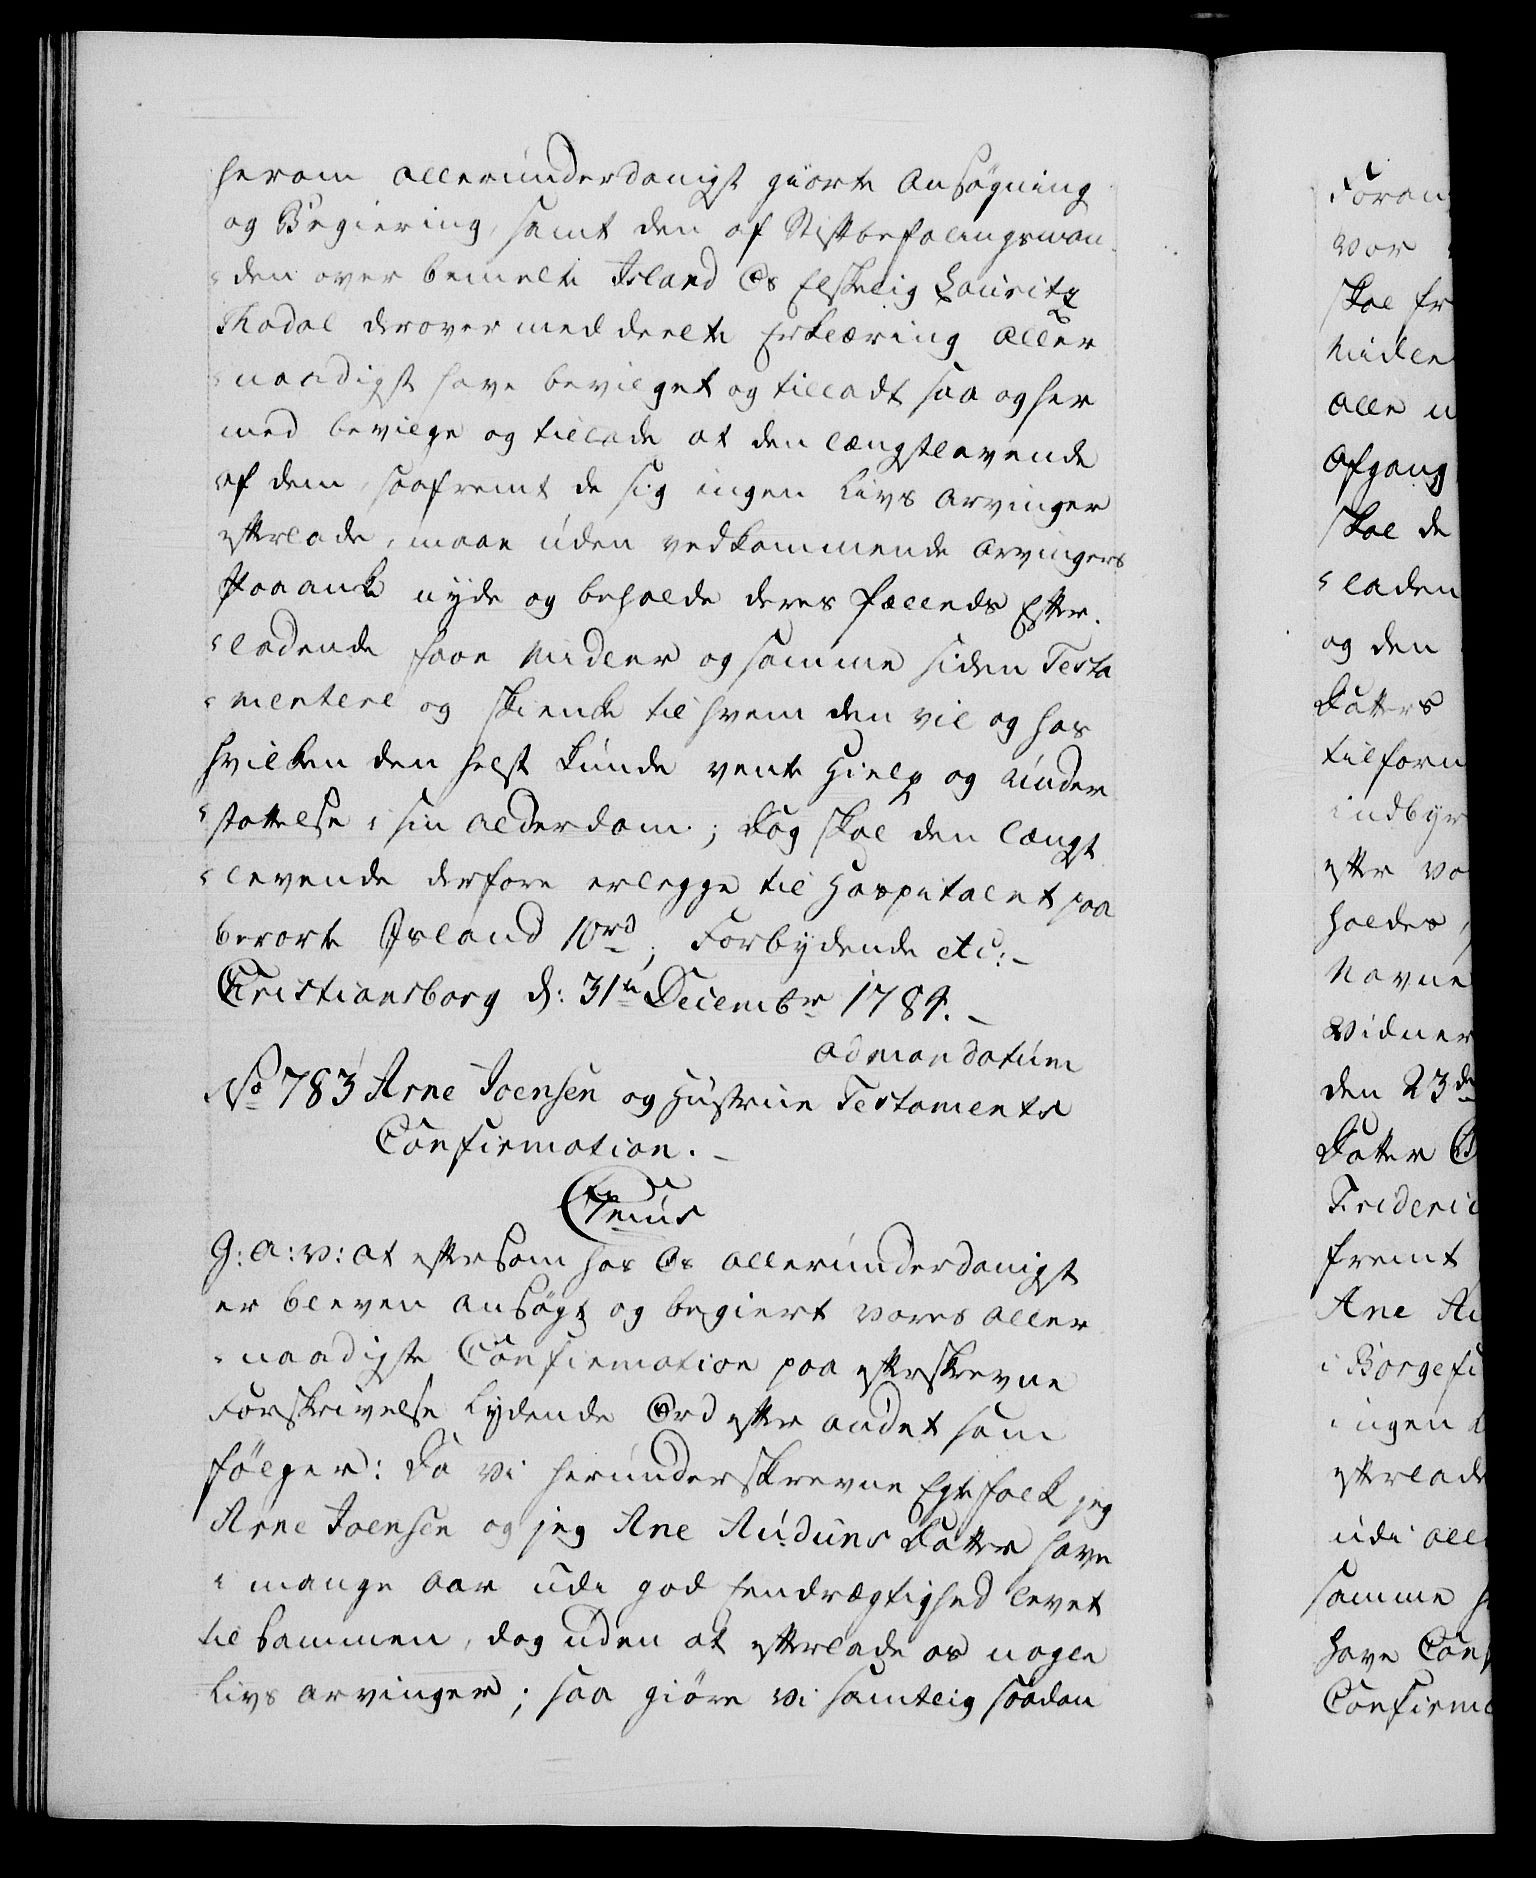 herom allerunderdanigst giorte Ansøgning
og Begiering, samt den af Stiftbefalingsman-
-den over bemelte Island Os Elskelig Lauritz
Thodal derover meddeelte Erklæring Aller
-naadigst have bevilget og tilladt saa og her
med bevilge og tillade at den længstlevende
af dem, saafremt de sig ingen Livs Arvinger
efterlade, maae uden vedkommende Arvingers
Paaanke nyde og beholde deres Fælleds Efter-
-ladende faae Midler og samme siden Testa
-mentere og skienke til hvem den vil og hos
hvilken den helst kunde vente Hielp og Under
-støttelse i sin Alderdom; Dog skal den længst
-levende derfore erlegge til Hospitalet paa
berørte Island 10rd; Forbydende etc:-
Christiansborg d: 31te Decembr 1784.-
ad mandatum
No 783 Arne Joensen og Hustrue Testaments
Confirmation.-
C7mus
G: A: V: at eftersom hos Os allerunderdanigst
er bleven ansøgt og begiert vores Aller
-naadigste Confirmation paa efterskrevne
Forskrivelse lydende Ord efter andet som
følger: Da vi herunderskrevne Egtefolk jeg
Arne Joensen og jeg Ane Auduns Datter have
i mange Aar udi god Eendrægtighed levet
tilsammen, dog uden at efterlade os nogle
Livs Arvinger; saa giøre vi samtlig saadan
Foran
vor
skal fr
Midle
alle u
Afgang
skal de
-laden
og den
Datters
tilforn
indbyr
efter vo
holdes
Navne
Vidner
den 23de
Datter
Frideric
fremt
Ane Au
i Borgefi
ingen
efterlade
udi all
samme
have Con
Confirma